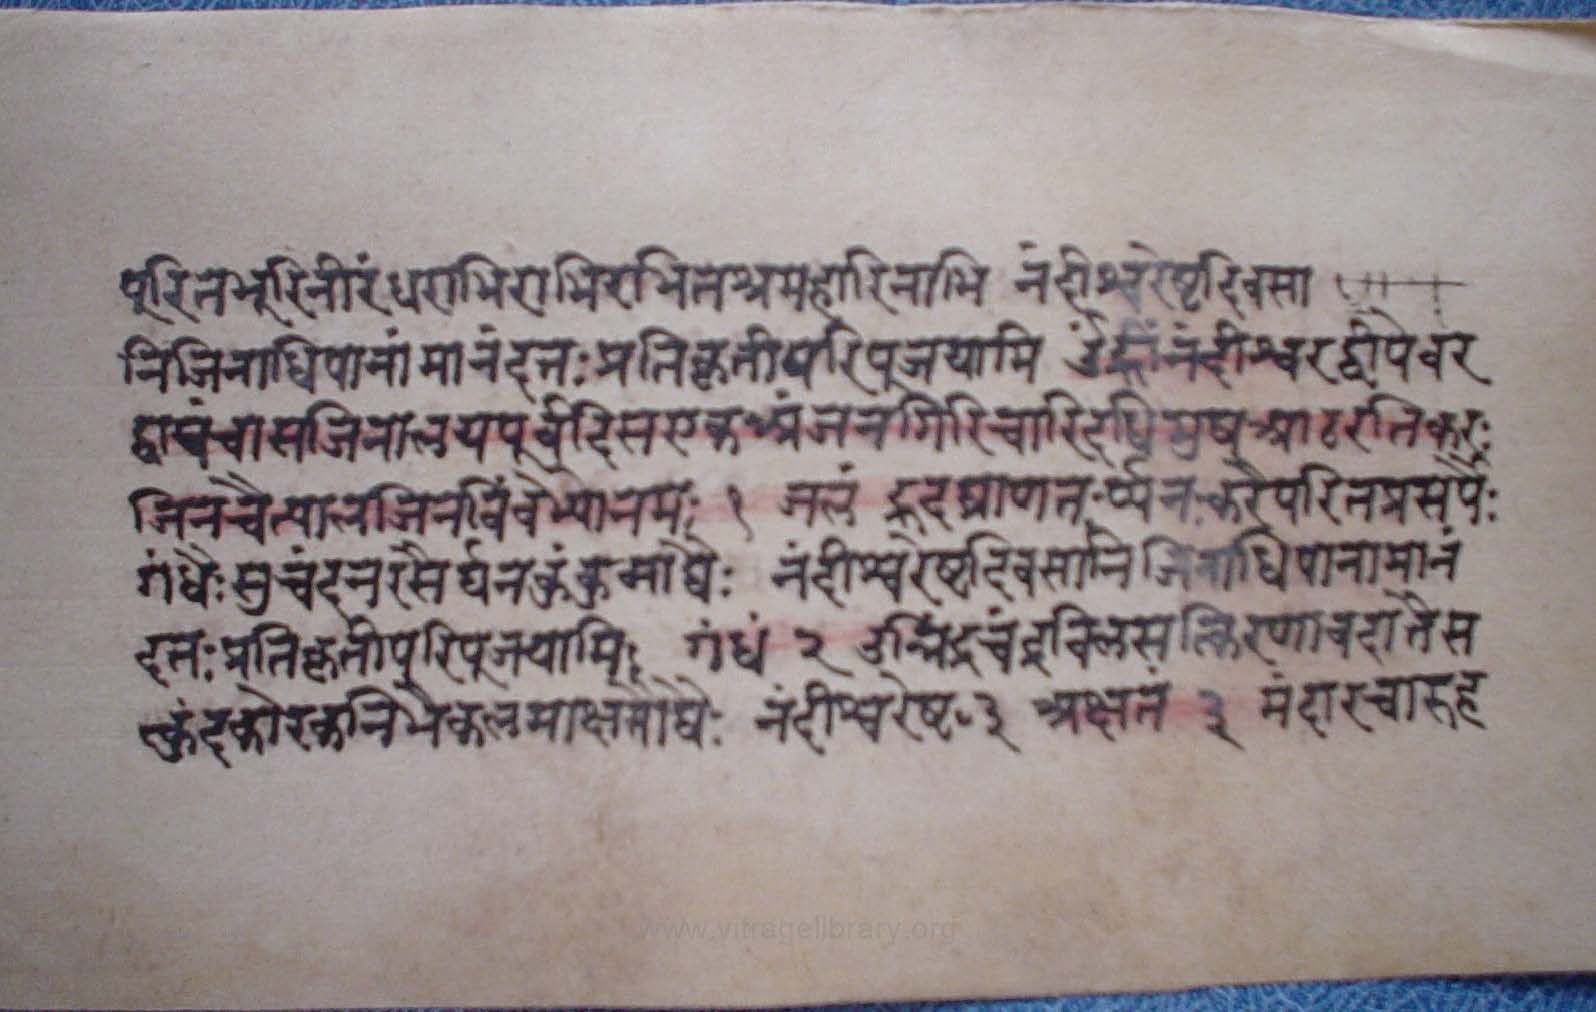 पूरितभूरिनीरंधराभिराभिरभितश्रमहारिनाभि नंदीश्वरेष्टदिवसा
निजिनाधिपानांमानंदतः प्रतिकृतीपरिपूजयामि उंह्रींनंदीश्वरद्वीपेवंर
द्वापंचासजिनालयपूर्वदिसएकअंजनगिरिचारिदधिमुषआठरतिकरः
जिनचैत्यालजिनविंवेभ्योनमः १ जलं
गंधैः सुचंदनरसैर्घनकुंकुमाद्यैः नंदीश्वरेष्टदिवसानिजिनाधिपानामानं
दतः प्रतिकृतीपरिपूजयामि गंधं २ उन्निद्रचंद्रविलसत्किरणावदातैस
त्कुंदकोरकनिभैकलमाक्षतौघैः नंदीश्वरेष्ट॰३ अक्षतं ३ मंदारचारुह
www.vitragelibrary.org